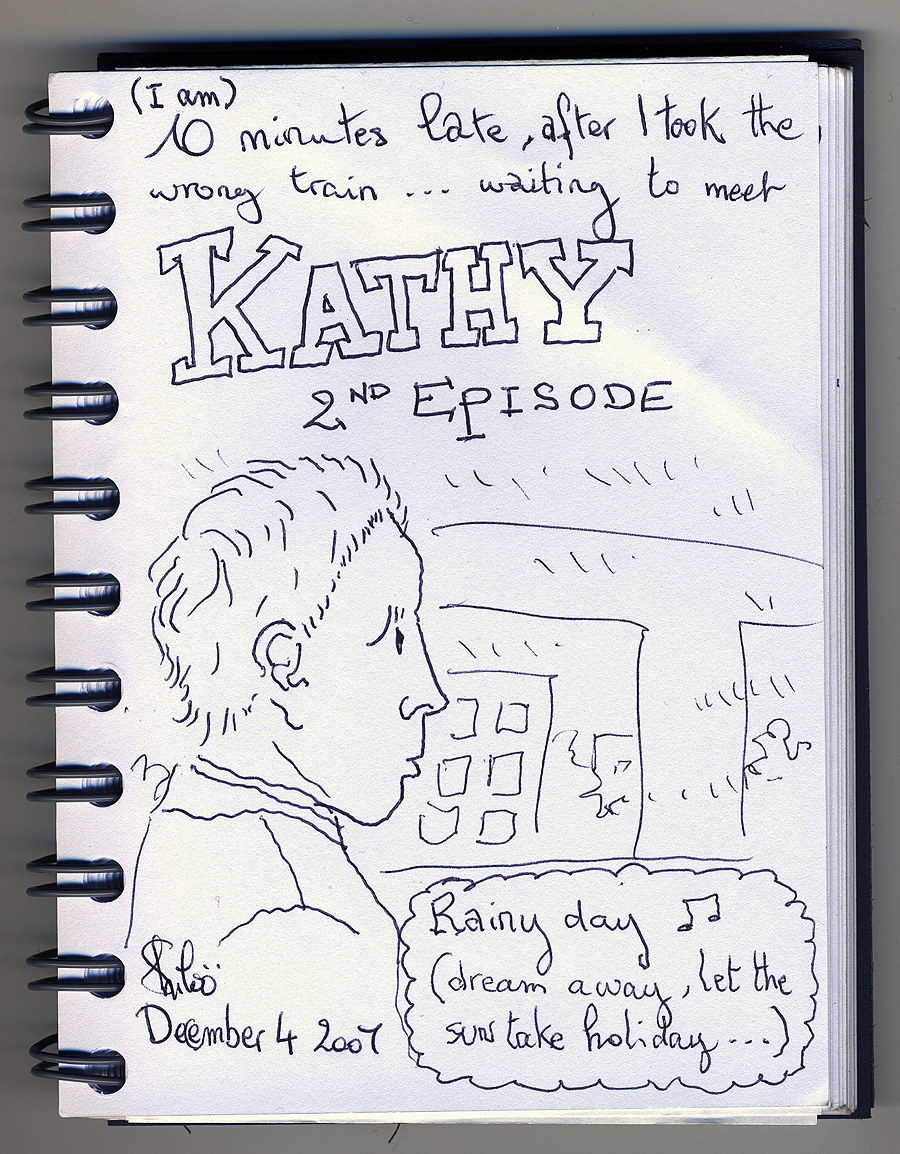 (I am)
10 minutes late, after I took the
wrong train ... waiting to meet
KATHY
2ND EPISODE
Rainy day ♫
(dream away, let the
sun take holiday...)
Shiloö
December 4 2007